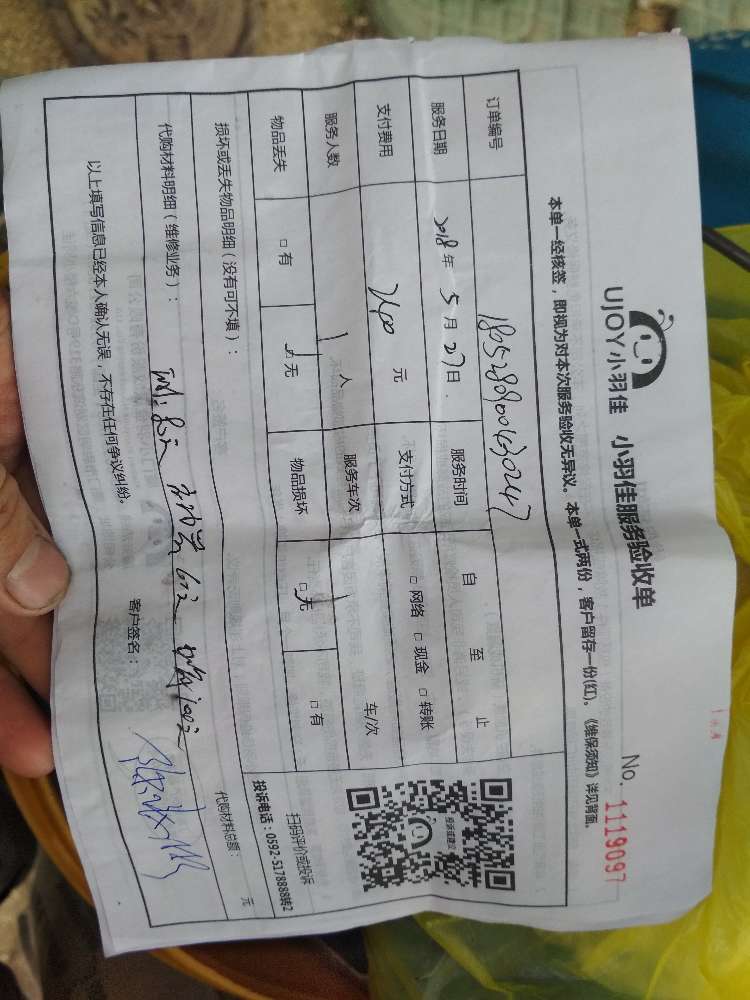 UJOY小羽佳 小羽佳服务验收单
No. 1119097
本单一经核签，即视为对本次服务验收无异议。本单一式两份，客户留存一份(红)。《维保须知》详见背面。
订单编号
服务日期 2018年 5月 27日 服务时间 自 至 止
支付费用 元 支付方式 □网络 □现金 □转账
服务人数 1 人 服务车次 车/次
物品丢失 □有 □无 物品损坏 □无 □有
扫码评价或投诉
投诉电话：0592-5178888转2
损坏或丢失物品明细（没有可不填）：
代购材料明细（维修业务）：
代购材料总额： 元
以上填写信息已经本人确认无误，不存在任何争议纠纷。 客户签名：